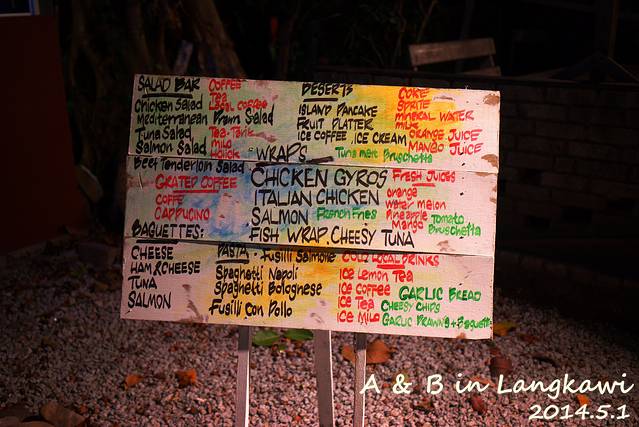 SALAD BAR
Chicken Salad
Mediterranean Prawn Salad
Tuna Salad
Salmon Salad
Beef Tenderloin Salad
COFFEE
Tea
Local coffee
Tea-Tarik
Milo
Horlick
DESERTS
ISLAND PANCAKE
FRUIT PLATTER
ICE COFFEE . ICE CREAM
COKE
SPRITE
MINERAL WATER
MILK
ORANGE JUICE
MANGO JUICE
Tuna melt Bruschetta
GRATED COFFEE
COFFE
CAPPUCINO
WRAPS
CHICKEN GYROS
ITALIAN CHICKEN
SALMON
French Fries
FISH WRAP. CHEESY TUNA
FRESH JUICES
orange
water melon
Pineapple
Mango
Tomato
Bruschetta
BAGUETTES:
CHEESE
HAM & CHEESE
TUNA
SALMON
PASTA
Fusilli Salmone
Spaghetti Napoli
Spaghetti Bolognese
Fusilli Con Pollo
COLD LOCAL DRINKS
ICE Lemon Tea
ICE COFFEE
ICE Tea
ICE Milo
GARLIC BREAD
CHEESY CHIPS
GARLIC PRAWNS + Baguette
A & B in Langkawi
2014.5.1